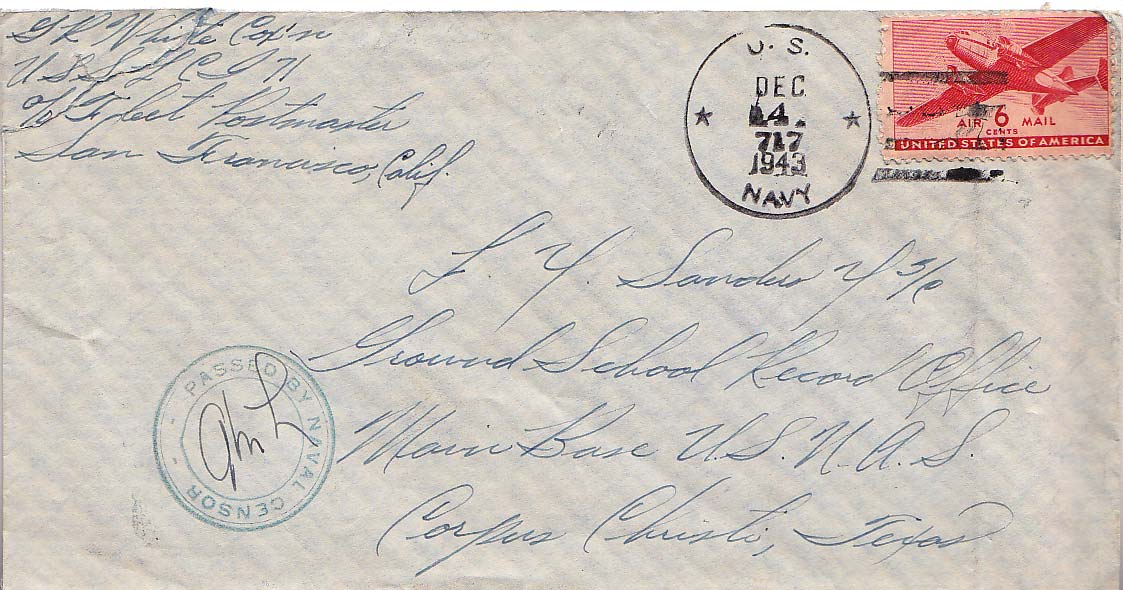 G R White Cox'n
U S S L C I 71
c/o Fleet Postmaster
San Francisco, Calif.
U. S.
DEC
14.
717
1943
NAVY
AIR 6 MAIL
CENTS
UNITED STATES OF AMERICA
L. Y. Sanders Y 3/c
Ground School Record Office
Main Base U.S.N.A.S.
Corpus Christi, Texas
PASSED BY NAVAL CENSOR